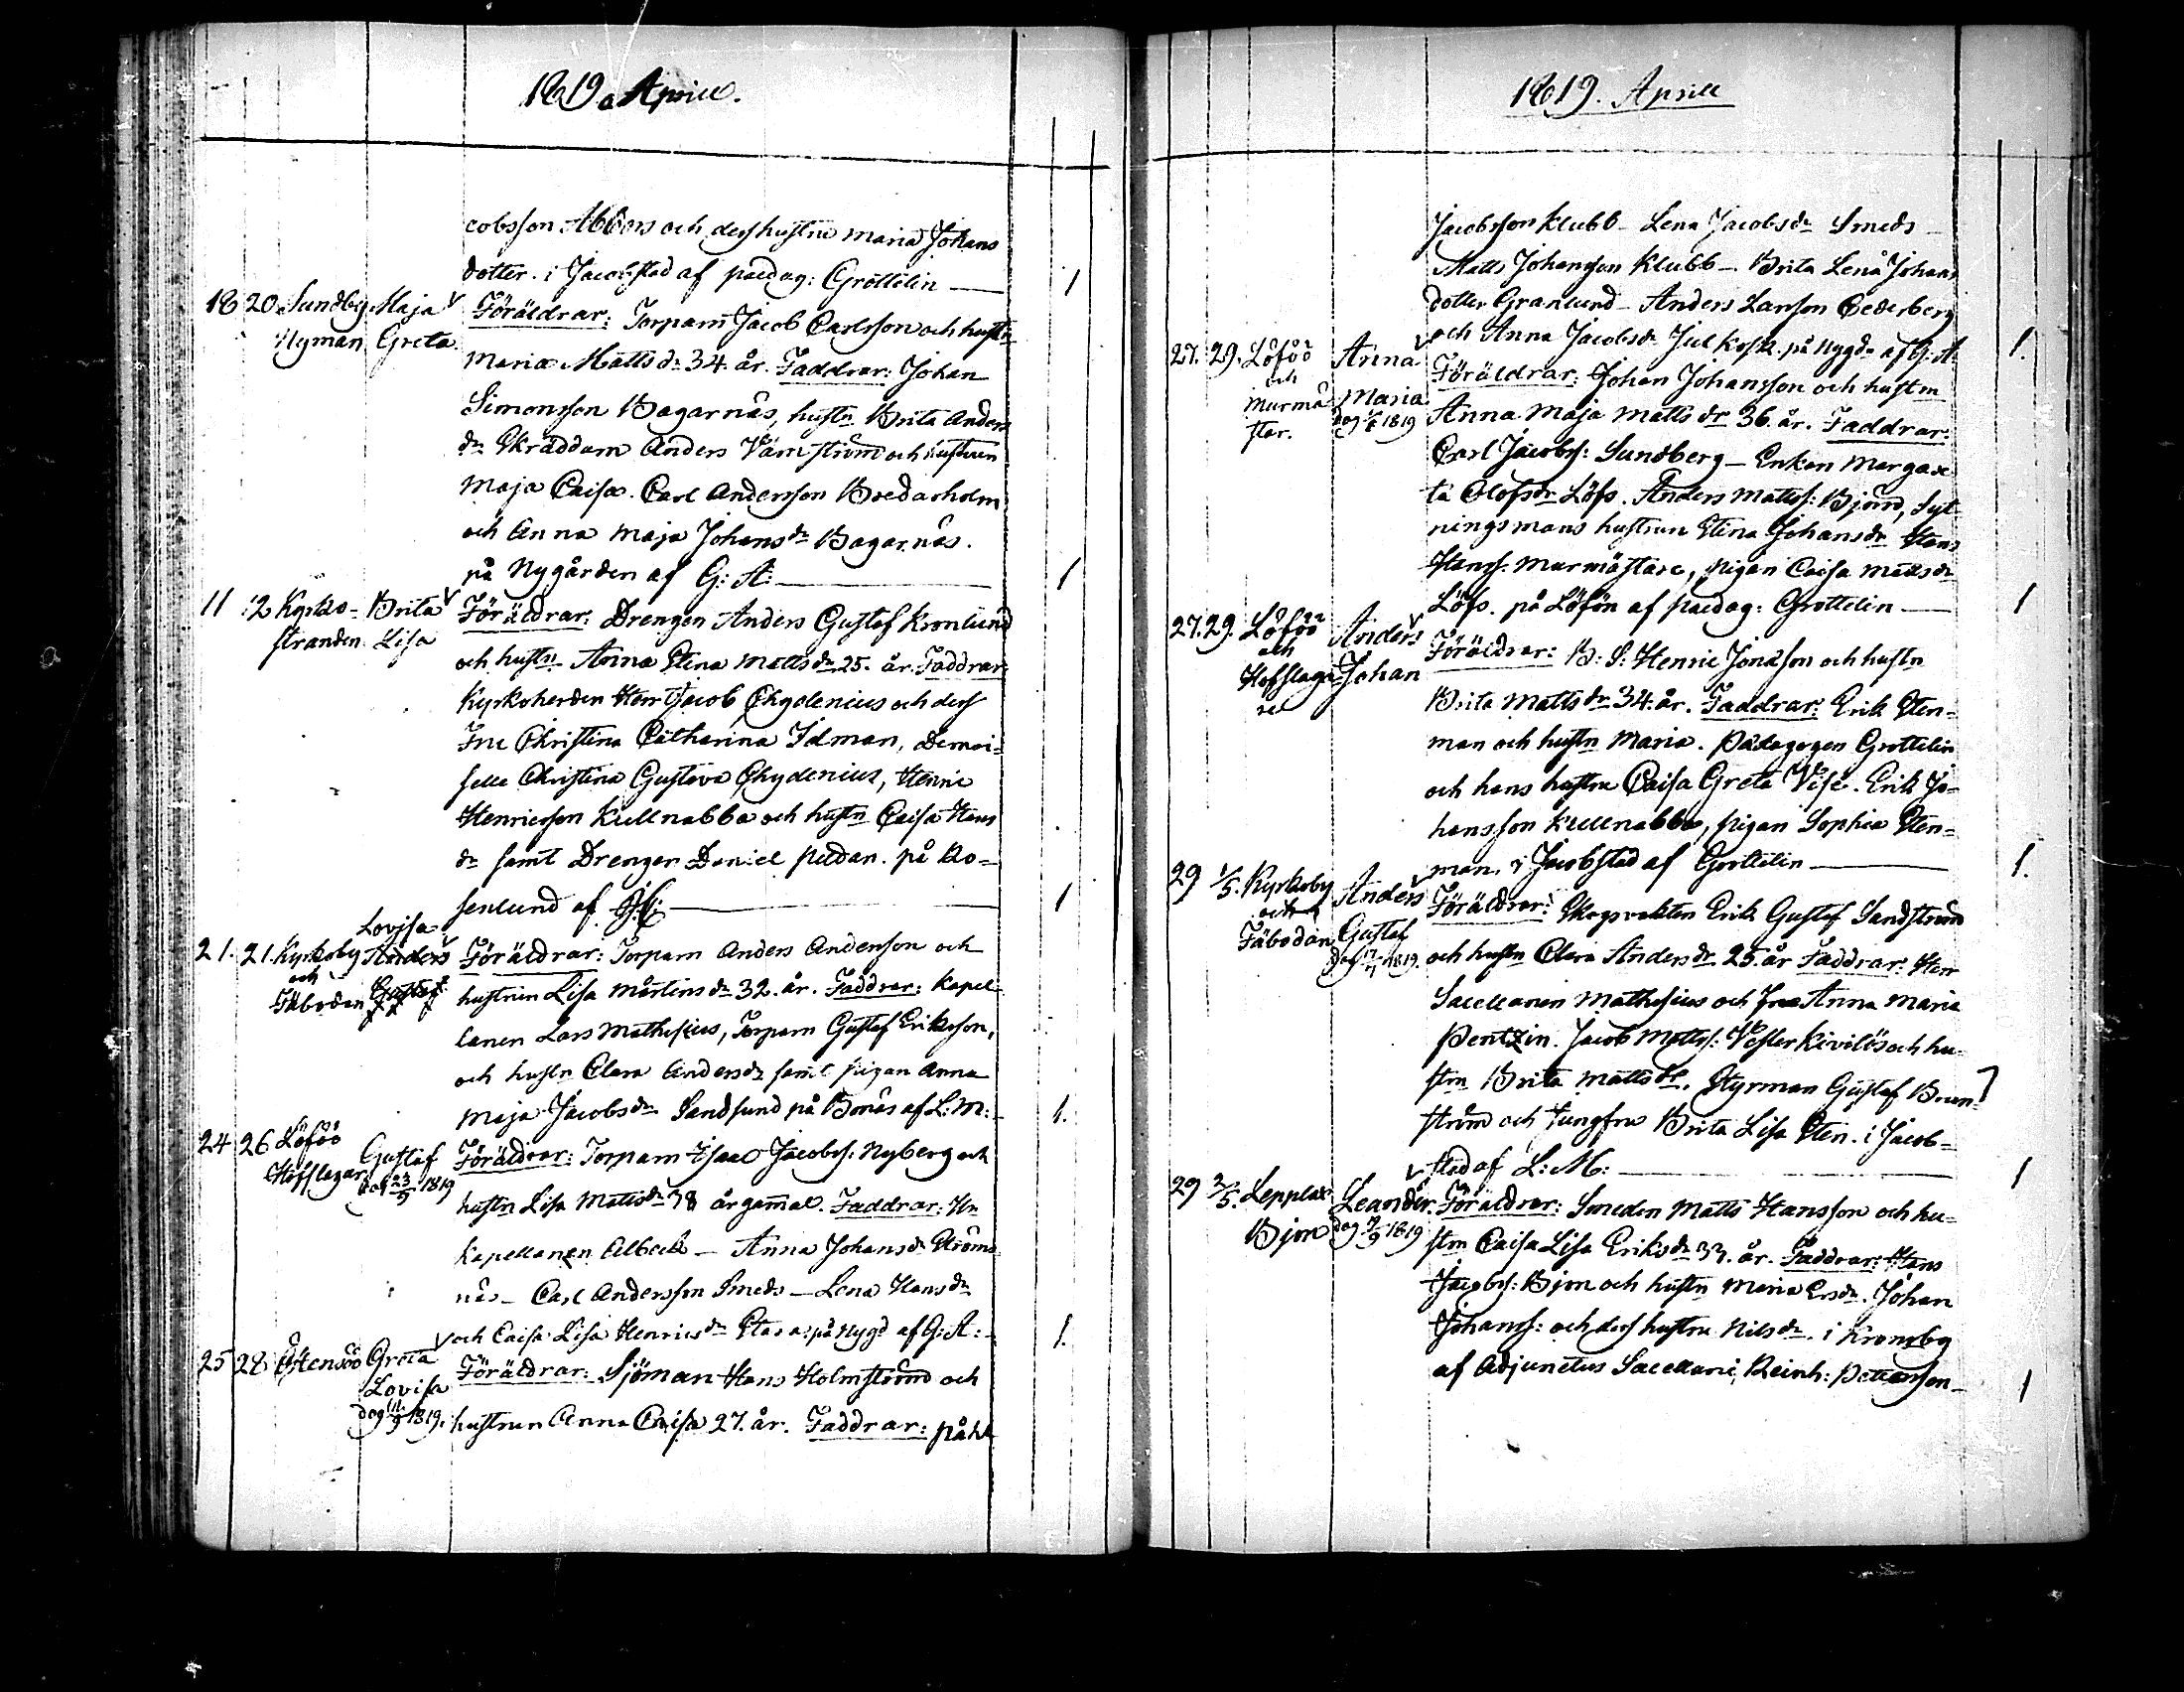 1819 Aprill.
cobsson Abbors och dess hustru Maria Johans
dotter. i Jacobstad af pædag: Grottelin
1
18 20 Sundby Maja Föräldrar: Torparn Jacob Carlsson och hustn
Nyman Greta Maria Matts dr 34 år. Faddrar: Johan
Simonsson Bagarnäs, hustn Brita Anders
dr Skräddarn Anders Värnström och hustrun
Maja Caisa. Carl Andersson Bredarholm
och Anna Maja Johans dr Bagarnäs.
på Nygården af G: A:
1
11 12 Kyrko- Brita Föräldrar: Drengen Anders Gustaf Kronlund
stranden Lisa och hustn Anna Stina Matts dr 25. år. Faddrar:
Kyrkoherden Herr Jacob Chydenius och dess
Fru Christina Catharina Idman, Demoi-
selle Christina Gustava Chydenius, Henric
Henricsson Kullnabba och hustn Caisa Hans
dr samt Drengen Daniel på Ro-
senlund af
1
Lovisa
21. 21. Kyrkoby Anders Föräldrar: Torparn Anders Andersson och
och Gustaf hustrun Lisa Mårtens dr 32. år. Faddrar: Kapel-
Fäbodan lanen Lars Mathesius, Torparn Gustaf Eriksson,
och hustn Clara Anders dr samt pigan Anna
Maja Jacobs dr Sandsund på Bonäs af L: M:
1.
24 26 Löföö Gustaf Föräldrar: Torparn Isaac Jacobss: Nyberg och
Hofslagar dog 23/5 1819 hustn Lisa Matts dr 38 år gammal. Faddrar: Hn
Kapellanen Alback – Anna Johans dr Ströms
näs – Carl Andersson Smeds – Lena Hans dr
och Caisa Lisa Henrics dr Stara på Nygd af G: A:
1.
25 28 Östensöö Greta Föräldrar: Sjöman Hans Holmström och
Lovisa
dog 11/9 1819. hustrun Anna Caisa 27. år. Faddrar: Påhl
1819. Aprill
Jacobsson Klubb – Lena Jacobs dr Smeds –
Matts Johansson Klubb – Brita Lena Johans
dotter Granlund – Anders Larsson Cederberg
och Anna Jacobs dr på Nygd af G: A:
1.
27. 29. Löföö Anna Föräldrar: Johan Johansson och hustrn
och Murmä- Maria Anna Maja Matts dr 36. år. Faddrar:
star. dog 1819 Carl Jacobss: Sundberg – Enkan Margare
ta Olofs dr Löfs. Anders Mattss: Björn, Syt-
ningsmans hustrun Stina Johans dr Hans
Hanss: Murmästare, pigan Caisa Matts dr
Löfs. på Löfön af pædag: Grottelin
1
27. 29. Löföö Anders Föräldrar: B: S: Henric Jonasson och hustn
och Hofslaga- Johan Brita Matts dr 34. år. Faddrar: Erik Sten-
re man och hustn Maria. Pädagogen Grottelin
och hans hustru Caisa Greta Vise. Erik Jo-
hansson Kullnabba, pigan Sophia Sten-
man. i Jacobstad af Grottelin
1.
29 1/5. Kyrkoby Anders Föräldrar: Skogsvakten Erik Gustaf Sandström
och Fäbodan Gustaf och hustn Clara Anders dr 25. år Faddrar: Herr
dog 1819. Sacellanen Mathesius och Frua Anna Maria
Pentzin. Jacob Mattss: Vester Kivilös och hu-
strn Brita Matts dr. Styrman Gustaf Brun-
ström och Jungfru Brita Lisa Sten. i Jacob-
stad af L: M:
1
29 2/5. Lepplax Leander. Föräldrar: Smeden Matts Hansson och hu-
Bjon dog 7/9 1819 strn Caisa Lisa Eriks dr 33. år. Faddrar: Hans
Jacobss: Bjon och hustn Maria Ers dr. Johan
Johanss: och dess hustru Nils dr. i Kronoby
af Adjunctus Sacellani Reinh: Pettersson
1